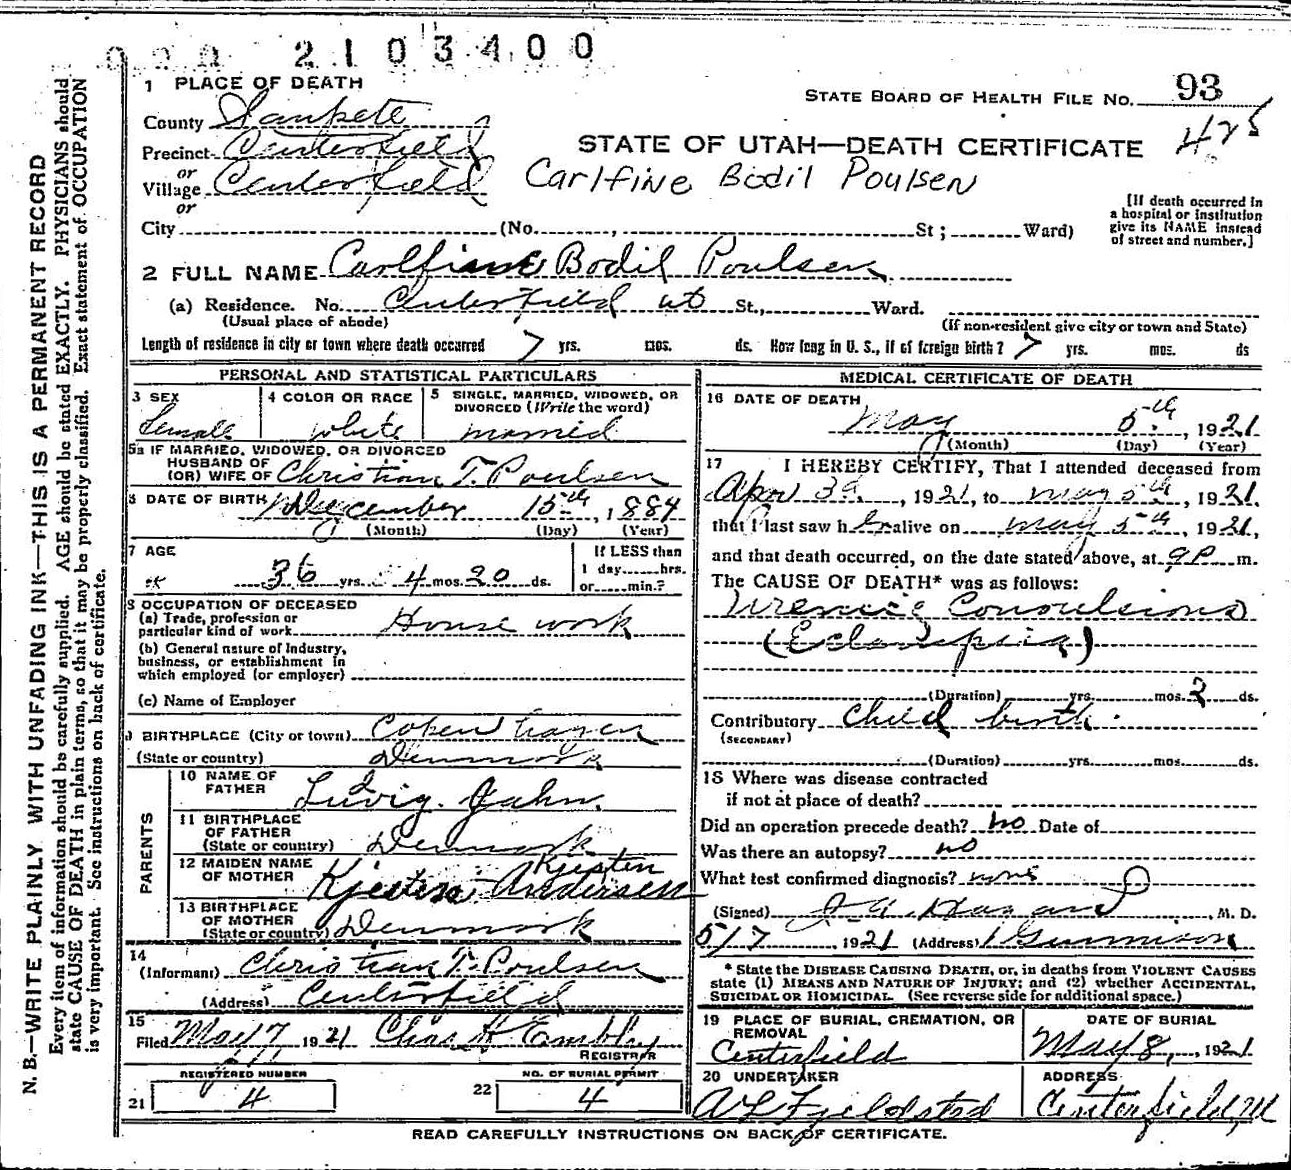 2103400
1 PLACE OF DEATH
STATE BOARD OF HEALTH FILE NO. 93
425
County Sanpete
Precinct Centerfield
or
Village Centerfield
or
STATE OF UTAH—DEATH CERTIFICATE
Carlfine Bodil Poulsen
[If death occurred in a hospital or institution give its NAME instead of street and number.]
City (No. , St ; Ward)
2 FULL NAME Carlfine Bodil Poulsen
(a) Residence. No. Centerfield ut St., Ward.
(Usual place of abode) (If non-resident give city or town and State)
Length of residence in city or town where death occurred 7 yrs. mos. ds. How long in U. S., if of foreign birth? 7 yrs. mos. ds
PERSONAL AND STATISTICAL PARTICULARS
3 SEX Female
4 COLOR OR RACE white
5 SINGLE, MARRIED, WIDOWED, OR DIVORCED (Write the word) married
5a IF MARRIED, WIDOWED, OR DIVORCED
HUSBAND OF
(OR) WIFE OF Christian T. Poulsen
6 DATE OF BIRTH December 15th, 1884
(Month) (Day) (Year)
7 AGE
36 yrs. 4 mos. 20 ds.
If LESS than
1 day hrs.
or min.?
8 OCCUPATION OF DECEASED
(a) Trade, profession or
particular kind of work House work
(b) General nature of Industry,
business, or establishment in
which employed (or employer)
(c) Name of Employer
9 BIRTHPLACE (City or town) Copenhagen
(State or country) Denmark
PARENTS
10 NAME OF FATHER Ludvig Jahn.
11 BIRTHPLACE OF FATHER (State or country) Denmark
12 MAIDEN NAME OF MOTHER Kjesten Andersen
Kjesten
13 BIRTHPLACE OF MOTHER (State or country) Denmark
14
(Informant) Christian T. Poulsen
(Address) Centerfield
15
Filed May 7 1921 Chas H Embley
REGISTRAR
REGISTERED NUMBER
21 4
NO. OF BURIAL PERMIT
22 4
MEDICAL CERTIFICATE OF DEATH
16 DATE OF DEATH
May 5th, 1921
(Month) (Day) (Year)
17 I HEREBY CERTIFY, That I attended deceased from
Apr 3d, 1921, to May 5th, 1921,
that I last saw her alive on May 5th, 1921,
and that death occurred, on the date stated above, at 9P m.
The CAUSE OF DEATH* was as follows:
Uremic Convulsions
(Eclampsia)
(Duration) yrs. mos. 2 ds.
Contributory Child birth.
(SECONDARY)
(Duration) yrs. mos. ds.
18 Where was disease contracted
if not at place of death?
Did an operation precede death? no Date of
Was there an autopsy? no
What test confirmed diagnosis? none
(Signed) M. D.
5/7, 1921 (Address) Gunnison
* State the DISEASE CAUSING DEATH, or, in deaths from VIOLENT CAUSES
state (1) MEANS AND NATURE OF INJURY; and (2) whether ACCIDENTAL,
SUICIDAL OR HOMICIDAL. (See reverse side for additional space.)
19 PLACE OF BURIAL, CREMATION, OR REMOVAL
Centerfield
DATE OF BURIAL
May 8, 1921
20 UNDERTAKER
A L Fjeldsted
ADDRESS
Centerfield, Ut
READ CAREFULLY INSTRUCTIONS ON BACK OF CERTIFICATE.
N. B.—WRITE PLAINLY WITH UNFADING INK—THIS IS A PERMANENT RECORD
Every item of information should be carefully supplied. AGE should be stated EXACTLY. PHYSICIANS should
state CAUSE OF DEATH in plain terms, so that it may be properly classified. Exact statement of OCCUPATION
is very important. See instructions on back of certificate.